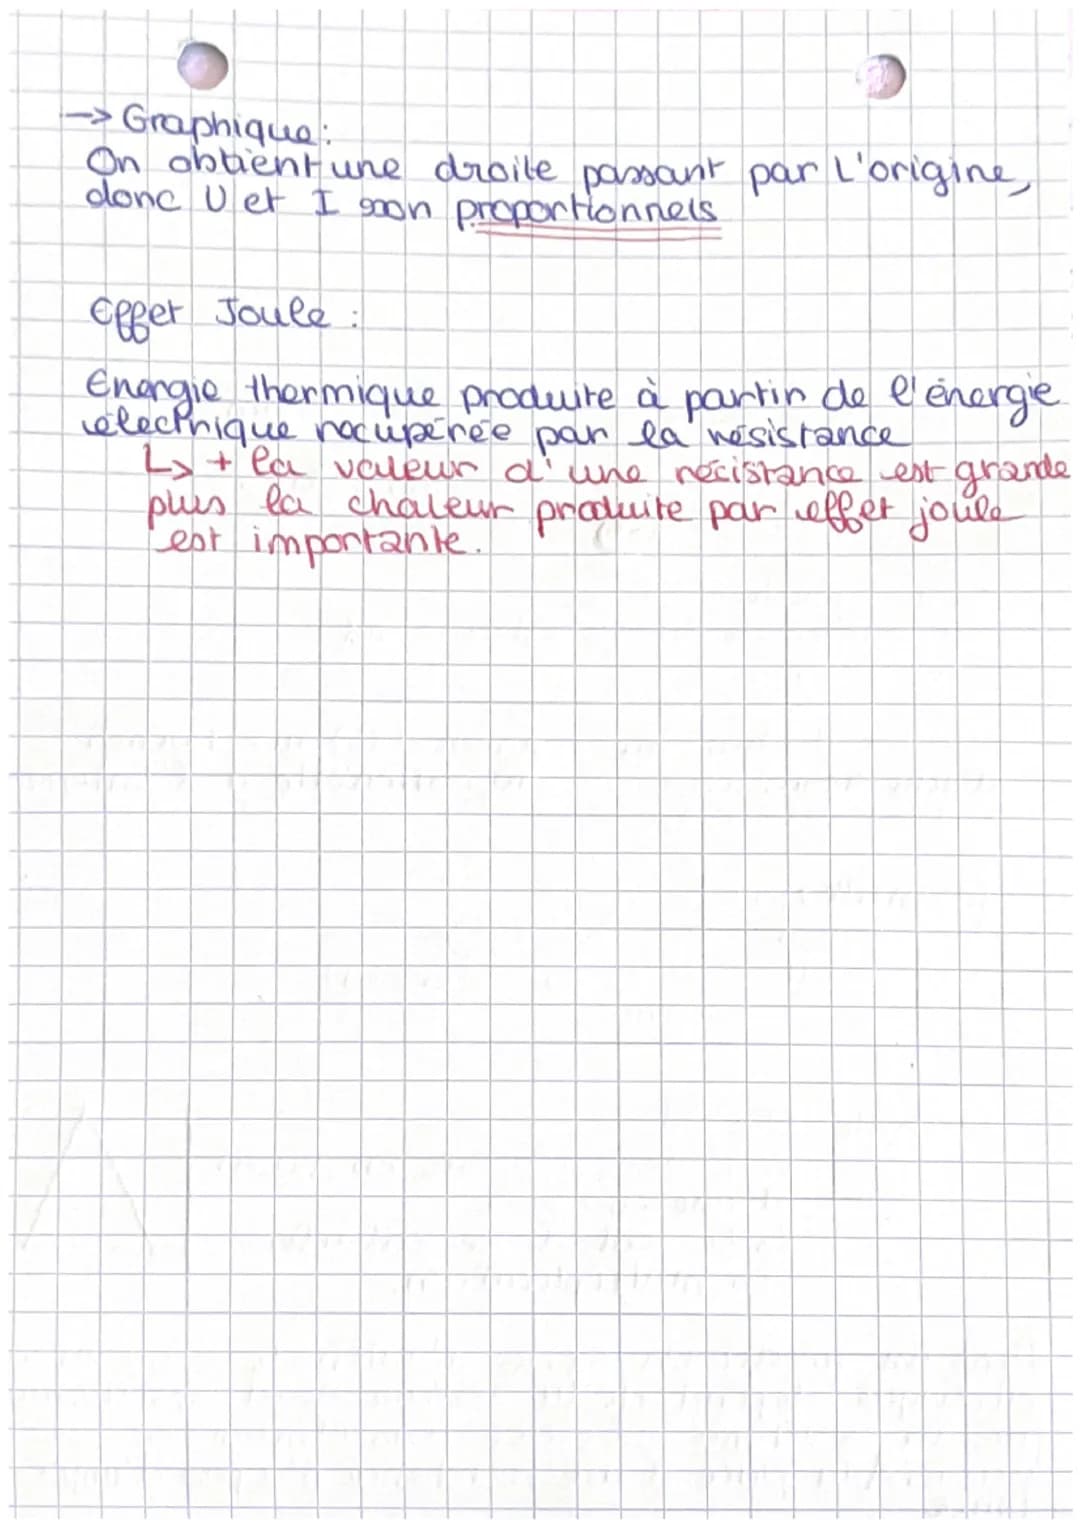 -> Graphique:
On obtient une droite passant par l'origine,
donc U et I soon proportionnels
Effet Joule :
Energie thermique produite à partir de l'énergie
électrique récupérée par la résistance
↳ + la valeur d'une résistance est grande
plus la chaleur produite par effet joule
est importante.